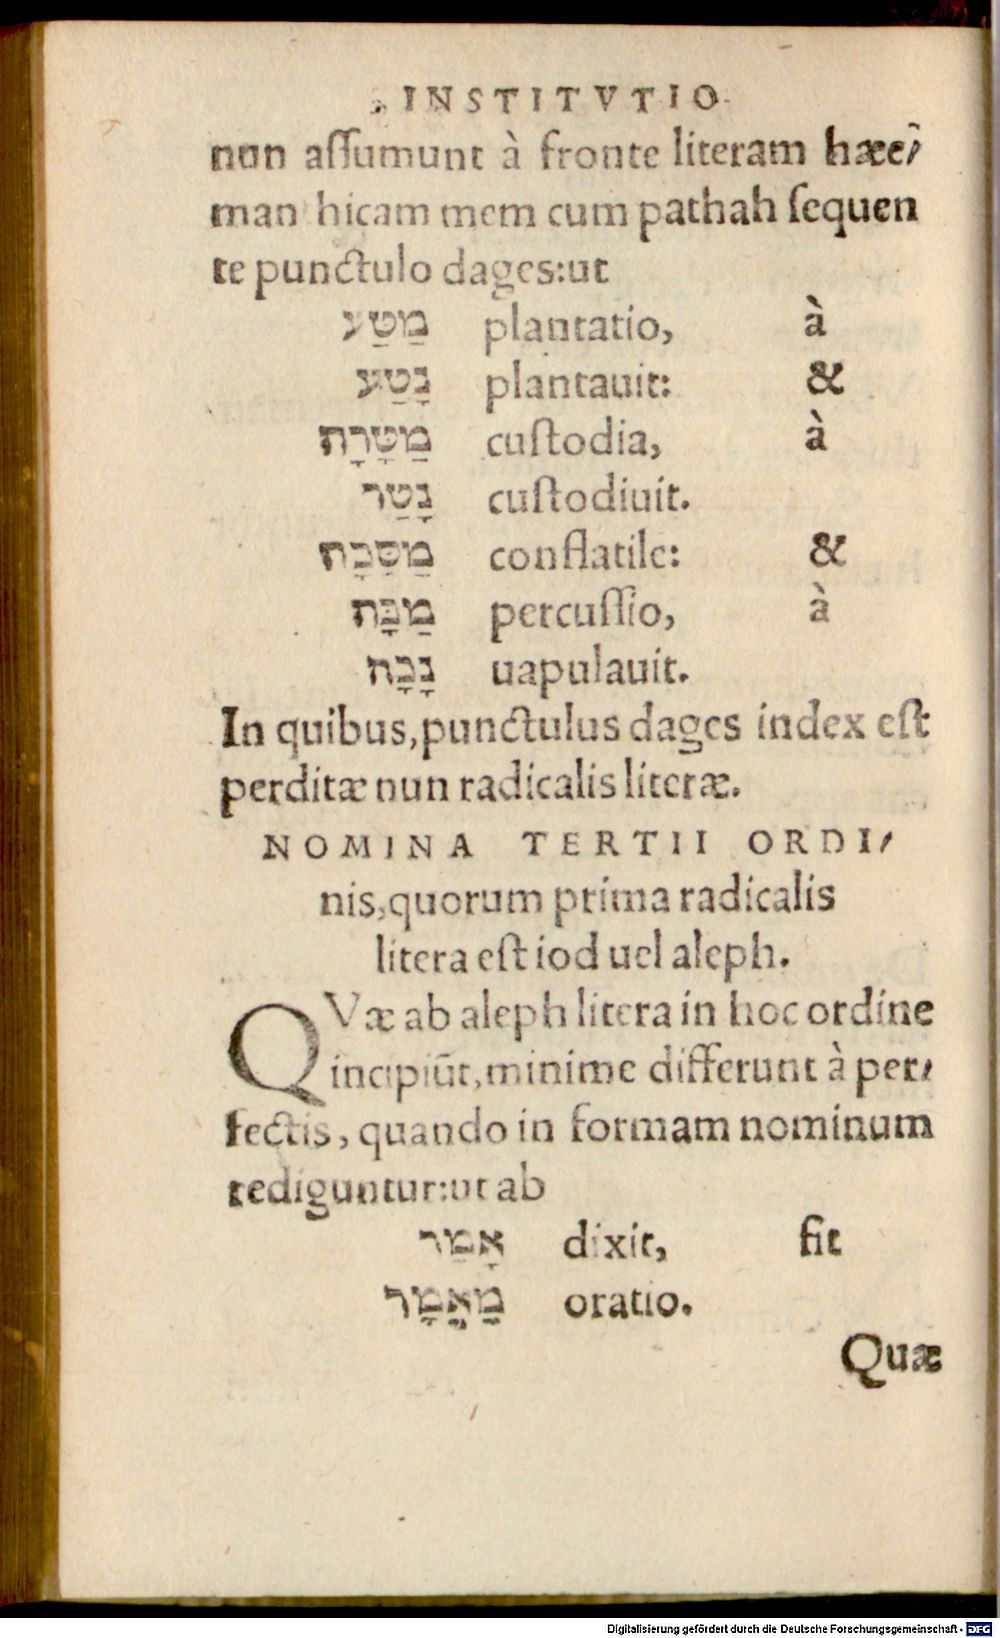 INSTITVTIO
nun aſſumunt à fronte literam hæeĩ/
man hicam mem cum pathah ſequen
te punctulo dages:ut
מַטַּע plantatio, à
נָטַע plantauit: &
מַטָּרָה cuſtodia, à
נָטַר cuſtodiuit.
מַסֵּכָה conflatile: &
מַכָּה percuſſio, à
נָכָה uapulauit.
In quibus,punctulus dages index eſt
perditæ nun radicalis literæ.
NOMINA TERTII ORDI/
nis,quorum prima radicalis
litera eſt iod uel aleph.
QVæ ab aleph litera in hoc ordine
incipiūt,minime differunt à per/
fectis, quando in formam nominum
rediguntur:ut ab
אָמַר dixit, fit
מַאֲמָר oratio.
Quæ
Digitalisierung gefördert durch die Deutsche Forschungsgemeinschaft - DFG